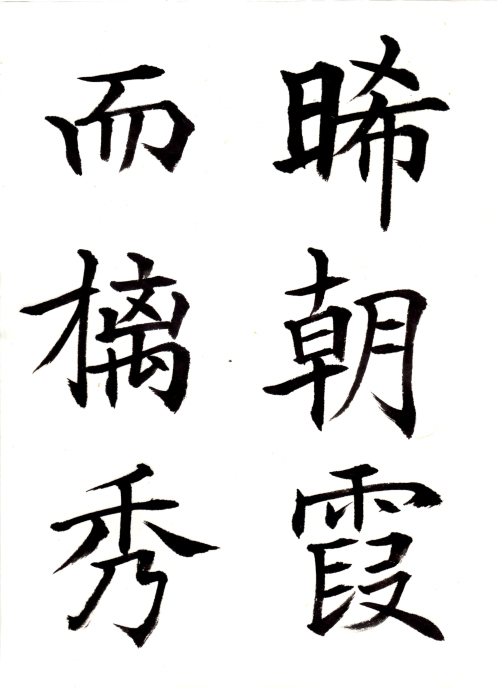 晞朝霞
而摛秀